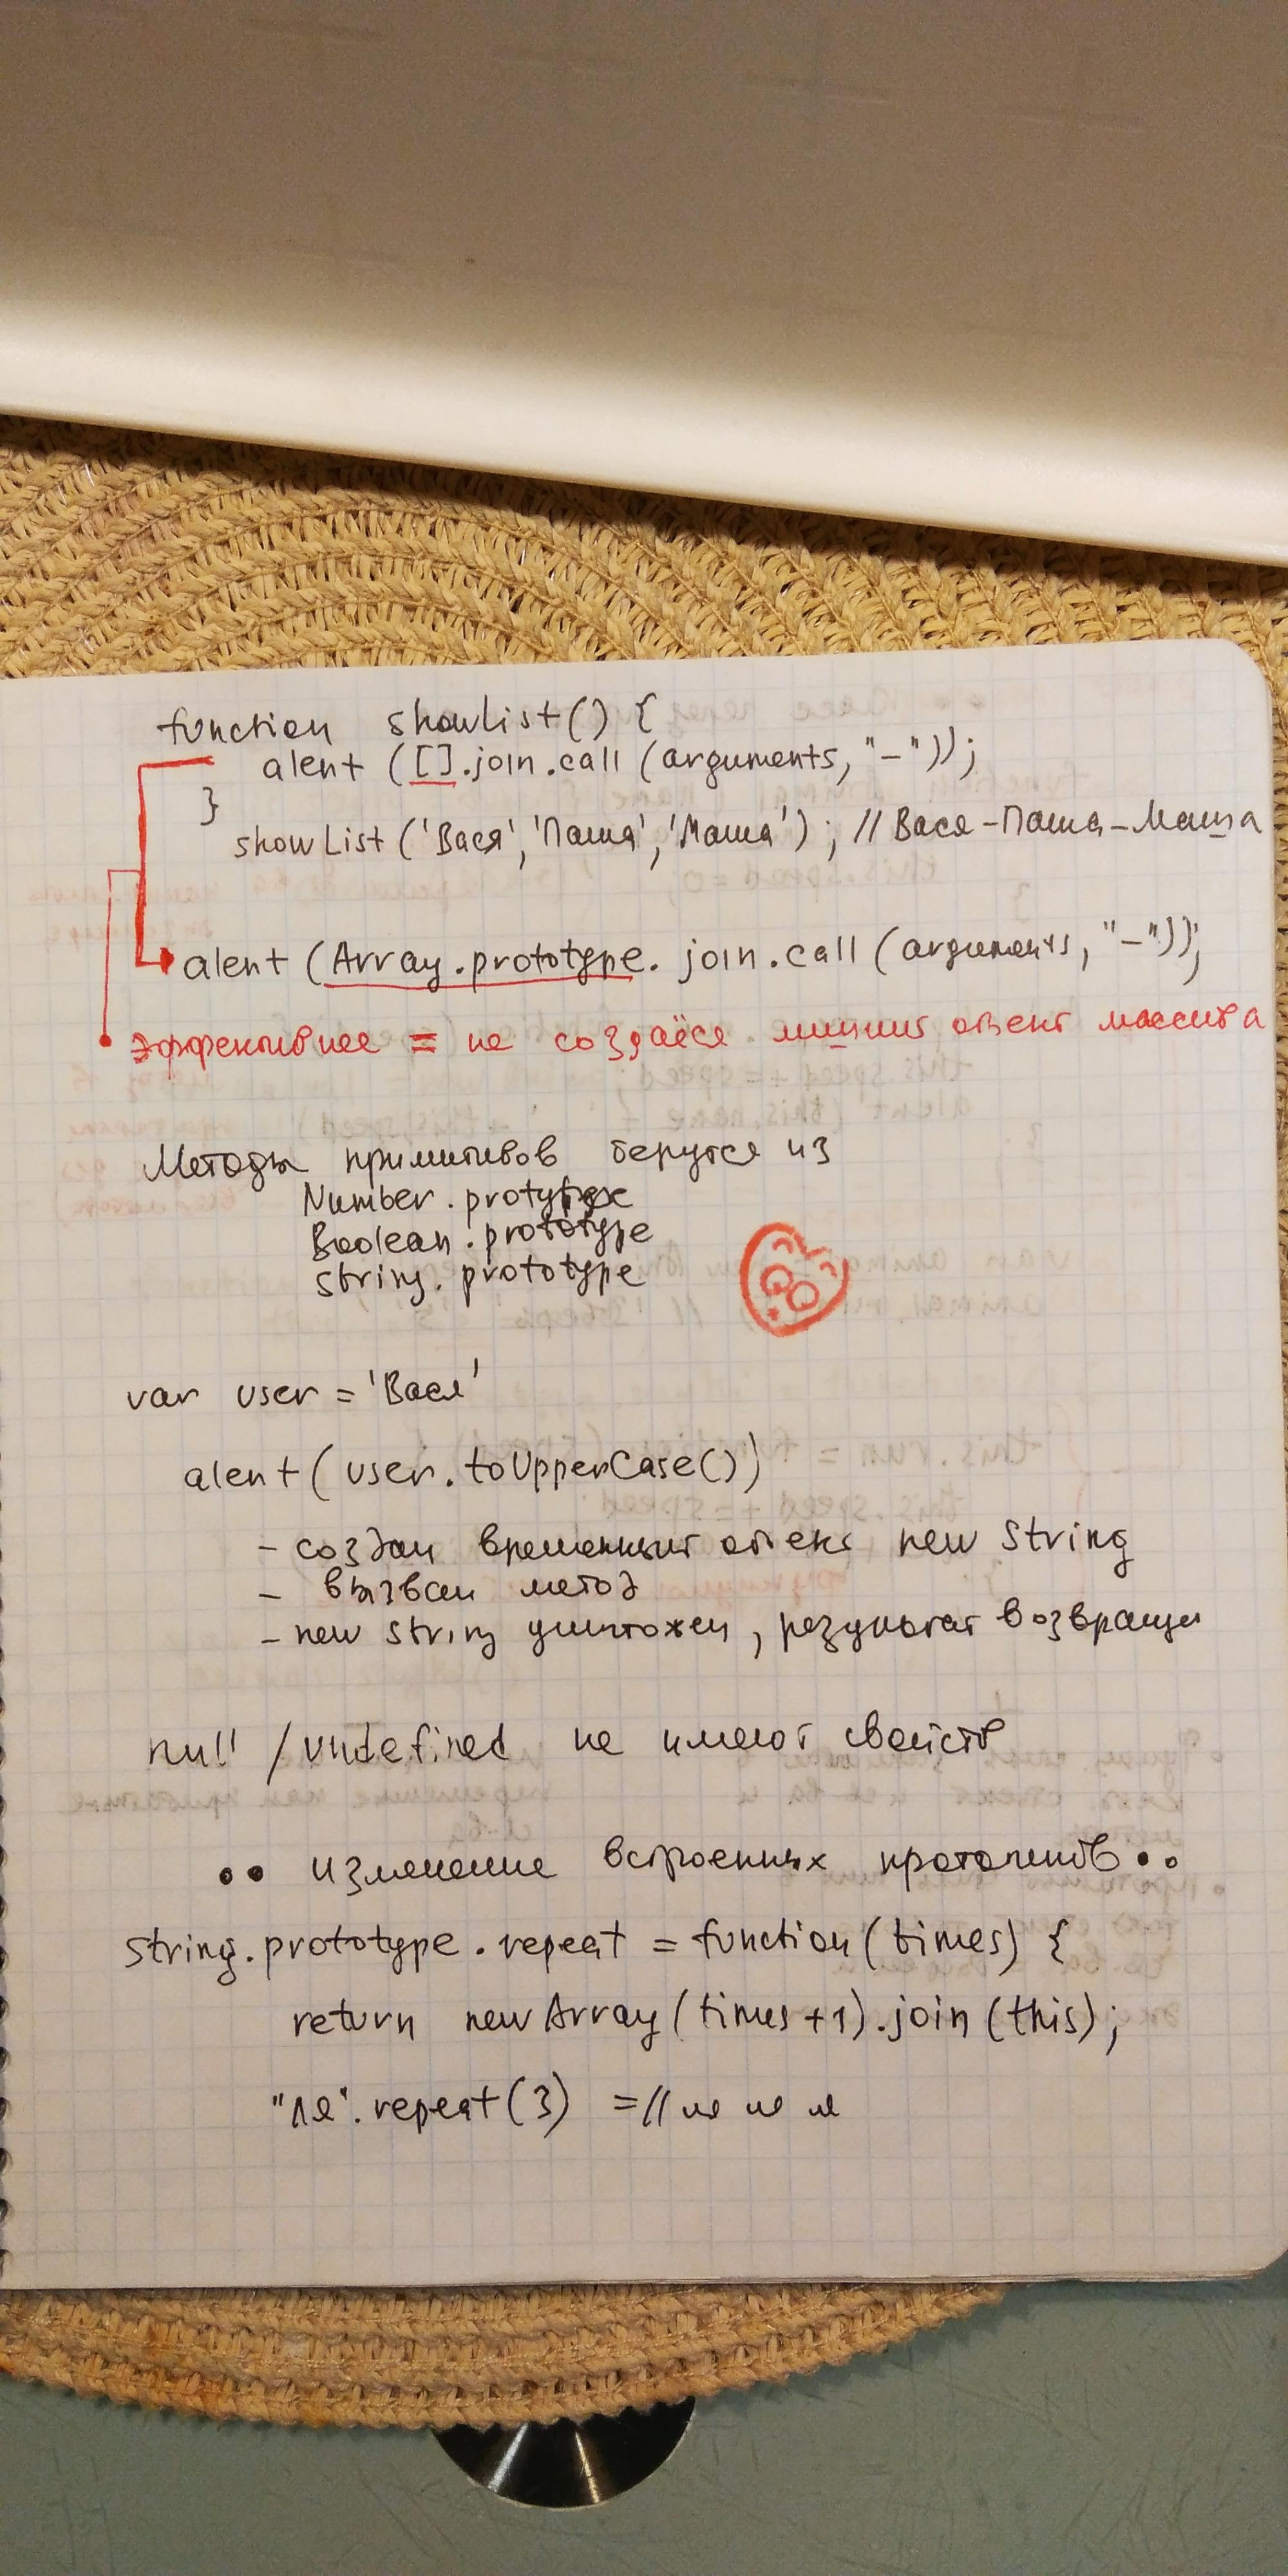 function showList() {
alert ([].join.call (arguments, "-"));
}
showList ('Вася', 'Паша', 'Маша') ; // Вася-Паша-Маша
alert (Array.prototype. join.call (arguments, "-"));
эффективнее = не создаёся лишний объект массива
Методы примитивов берутся из
Number.prototype
Boolean.prototype
String.prototype
var user = 'Вася'
alert (user.toUpperCase())
- создан временный объект new String
- вызван метод
- new String уничтожен, результат возвращен
null / undefined не имеют свойств
•• изменение встроенных прототипов ••
String.prototype.repeat = function (times) {
return new Array (times+1).join (this);
"ля".repeat (3) = // ля ля ля